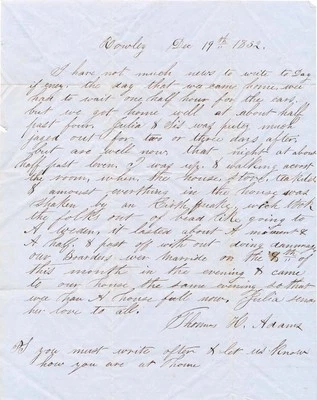 Rowley Dec 19th 1852.
I have not much news to write to Day
the day that we came home we
had to wait one half hour for the cars,
but we got home well at about half
past four, Julia & Sis was pretty much
two or three days after,
but are well now, that night at about
half past leven I was up & walking acrost
the room, when the house, stove,
& amoust everthing in the house was
shaken by an Earth quake, wich
the folks out of bead like going to
A it lasted about A minment &
A half, & past off with out doing damage
our Boarders wer marride on the 8th of
this month in the evening & came
to our house the same evening so that
we han A house full now, Julia sends
her love to all.
Thomas H. Adams
PS you must write often & let us know
how you are at Home